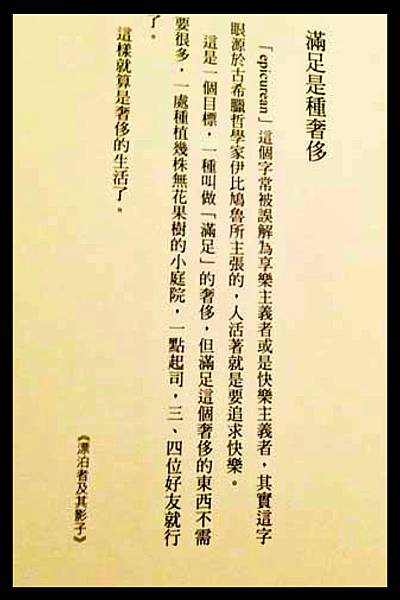 滿足是種奢侈
「epicurean」這個字常被誤解為享樂主義者或是快樂主義者，其實這字
眼源於古希臘哲學家伊比鳩魯所主張的，人活著就是要追求快樂。
這是一個目標，一種叫做「滿足」的奢侈，但滿足這個奢侈的東西不需
要很多，一處種植幾株無花果樹的小庭院，一點起司，三、四位好友就行
了。
這樣就算是奢侈的生活了。
《漂泊者及其影子》